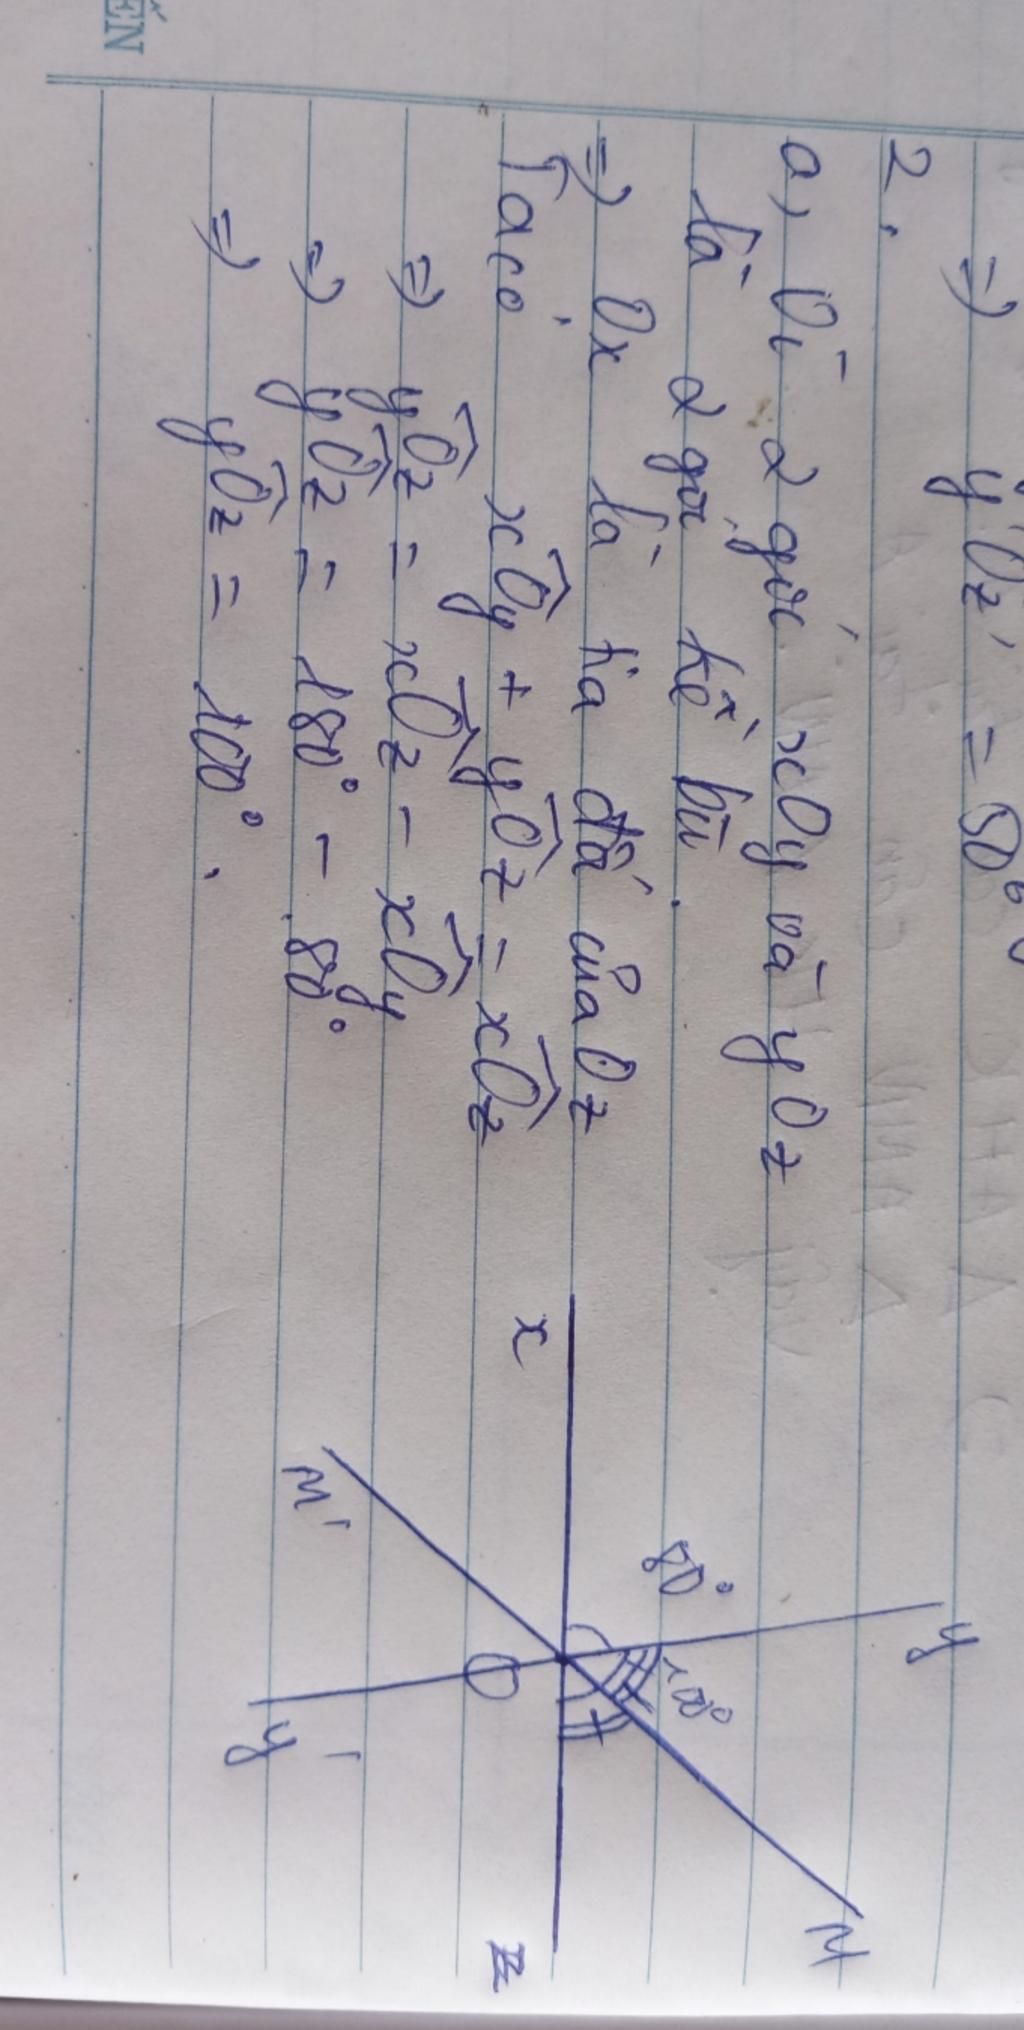 => y'Oz' = 50°
2.
a, Vì 2 góc xOy và yOz
là 2 góc kề bù.
=> Ox là tia đối của Oz
Ta có: xÔy + yÔz = xÔz
=> yÔz = xÔz - xÔy
=> yÔz = 180° - 80°
=> yÔz = 100°.
y
M
80°
100°
x
z
O
M'
y'
ẾN